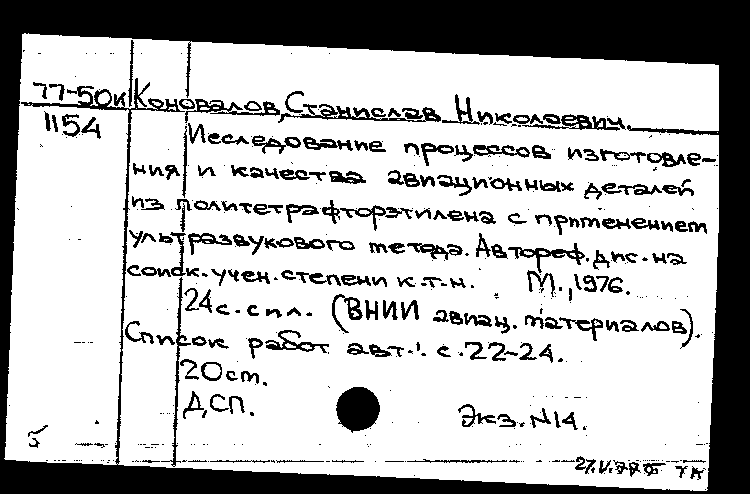 77-50к Коновалов, Станислав Николаевич.
1154
Исследование процессов изготовле-
ния и качества авиационных деталей
из политетрафторэтилена с применением
ультразвукового метода. Автореф. дис. на
соиск. учен. степени к.т.н. М., 1976.
24 с. с ил. (ВНИИ авиац. материалов).
Список работ авт.: с. 22-24.
20 cm.
ДСП. Экз. N14.
5
27.V.77